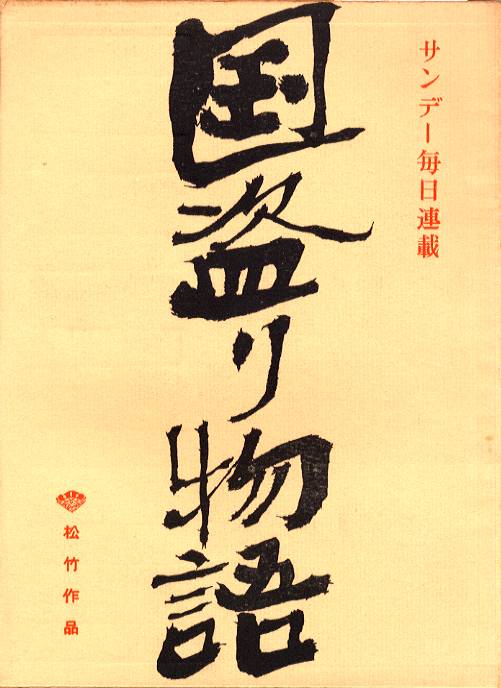 サンデー毎日連載
国盗り物語
松竹作品